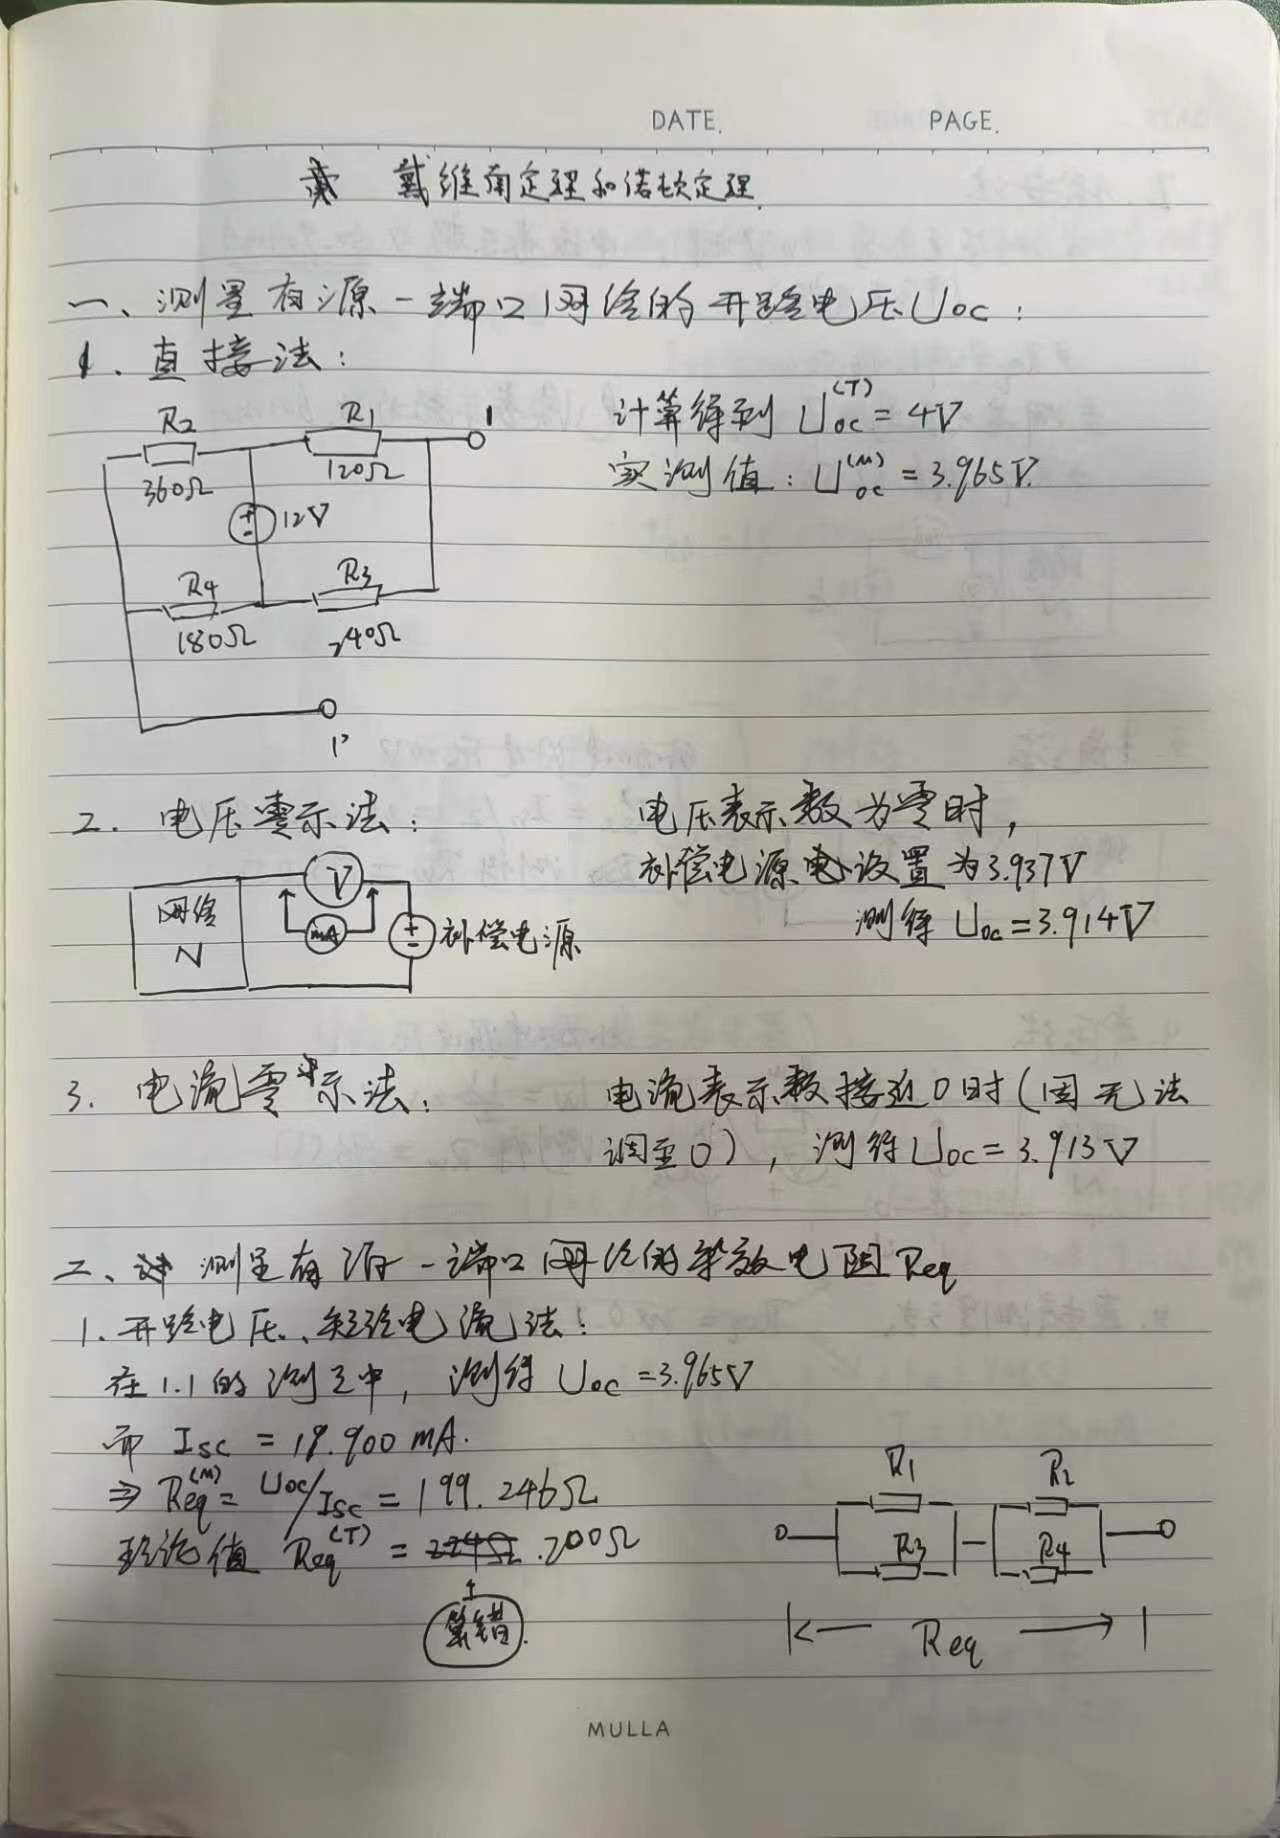 DATE. PAGE.
戴维南定理和诺顿定理.
一、测量有源一端口网络的开路电压Uoc:
1. 直接法:
R2 R1 1
360Ω 120Ω
+ - 12V
R4 R3
180Ω 240Ω
1'
计算得到 Uoc(T) = 4V
实测值: Uoc(M) = 3.965V.
2. 电压零示法:
网络 N
V
mA
+ - 补偿电源
电压表示数为零时,
补偿电源电设置为3.937V
测得 Uoc = 3.914V
3. 电流零示法:
电流表示数接近0时(因无法
调至0), 测得Uoc = 3.913V
二、测量有源一端口网络的等效电阻Req
1. 开路电压、短路电流法:
在1.1的测定中, 测得 Uoc = 3.965V
而 Isc = 19.900 mA.
⇒ Req(M) = Uoc/Isc = 199.246Ω
理论值 Req(T) = 224Ω. 200Ω
↑
算错.
R1 R2
R3 R4
Req
MULLA